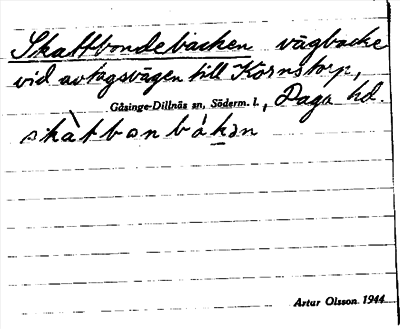 Skattbondebacken vägbacke
vid avtagsvägen till Kornstorp,
Gåsinge-Dillnäs sn, Söderm. l., Daga hd.
skàtbonbákən
Artur Olsson 1944